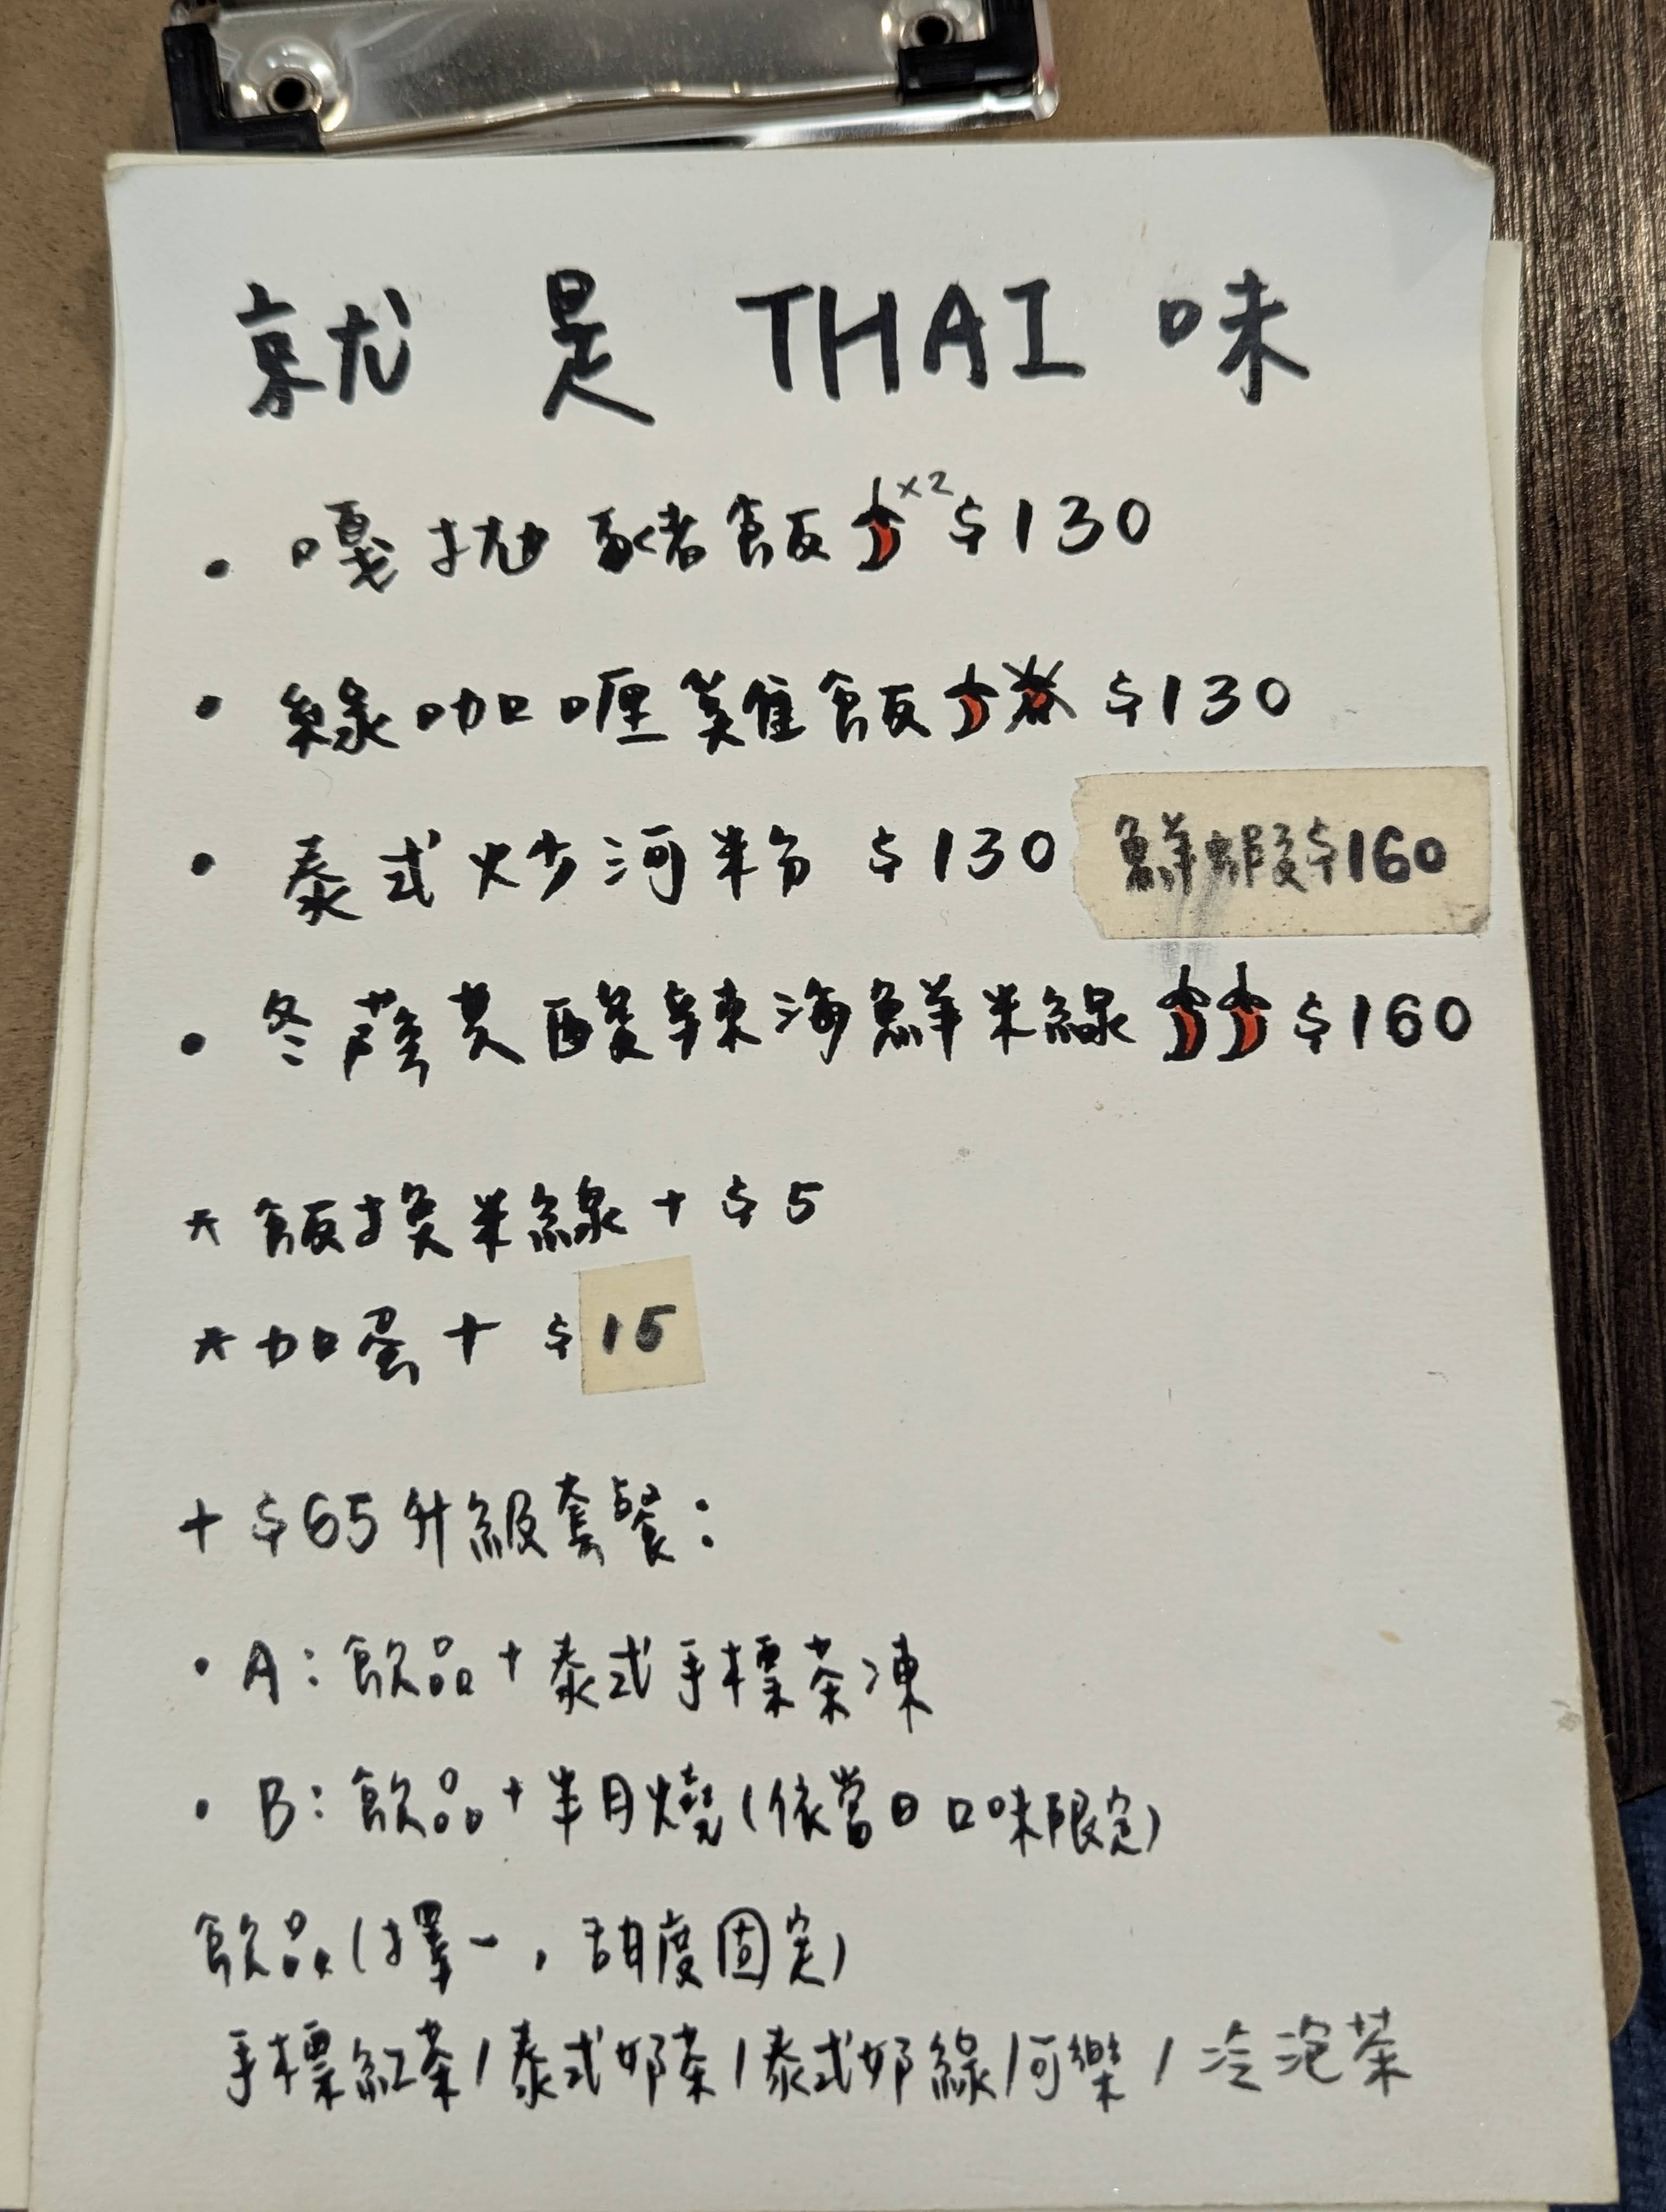 就是 THAI 味
• 嘎拋豬飯 x2 $130
• 綠咖喱雞飯 $130
• 泰式炒河粉 $130 鮮蝦$160
• 冬蔭功酸辣海鮮米線 $160
* 飯換米線 + $5
* 加蛋 + $15
+ $65 升級套餐:
• A: 飲品 + 泰式手標茶凍
• B: 飲品 + 半月燒 (依當日口味限定)
飲品 (擇一, 甜度固定)
手標紅茶 / 泰式奶茶 / 泰式奶綠 / 可樂 / 冷泡茶